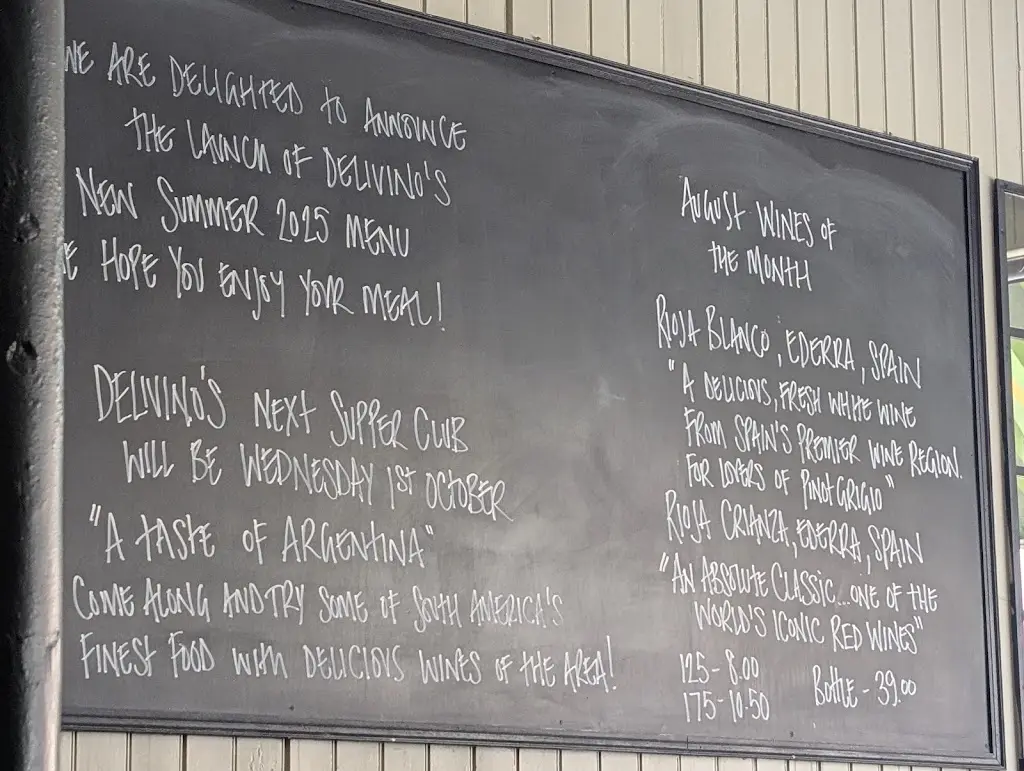 WE ARE DELIGHTED TO ANNOUNCE
THE LAUNCH OF DELIVINO'S
NEW SUMMER 2025 MENU
E HOPE YOU ENJOY YOUR MEAL!
DELIVINO'S NEXT SUPPER CLUB
WILL BE WEDNESDAY 1ST OCTOBER
"A TASTE OF ARGENTINA"
COME ALONG AND TRY SOME OF SOUTH AMERICA'S
FINEST FOOD WITH DELICIOUS WINES OF THE AREA!
AUGUST WINES OF
THE MONTH
RIOJA BLANCO, EDERRA, SPAIN
"A DELICIOUS, FRESH WHITE WINE
FROM SPAIN'S PREMIER WINE REGION.
FOR LOVERS OF PINOT GRIGIO"
RIOJA CRIANZA, EDERRA, SPAIN
"AN ABSOLUTE CLASSIC...ONE OF THE
WORLD'S ICONIC RED WINES"
125 - 8.00 BOTTLE - 39.00
175 - 10.50